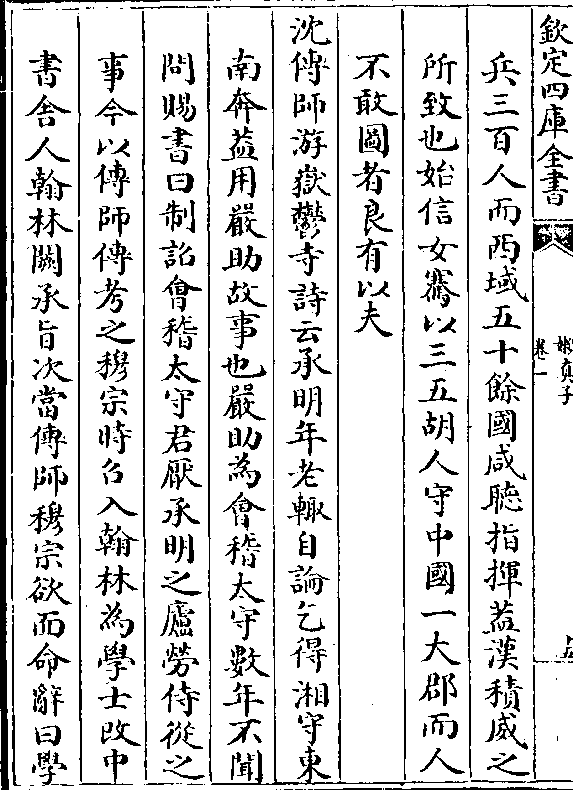 欽定四庫全書
嬾真子
卷一
五
兵三百人而西域五十餘國咸聽指揮蓋漢積威之
所致也始信女騫以三五胡人守中國一大郡而人
不敢圖者良有以夫
沈傳師游嶽麓寺詩云承明年老輙自論乞得湘守東
南奔蓋用嚴助故事也嚴助為會稽太守數年不聞
問賜書曰制詔會稽太守君厭承明之廬勞侍從之
事今以傳師傳考之穆宗時召入翰林為學士改中
書舍人翰林闕承旨次當傳師穆宗欲而命辭曰學